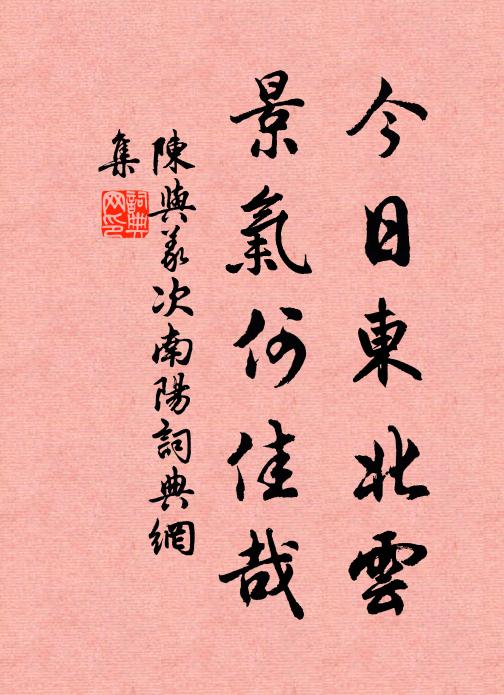 今日東北雲
景氣何佳哉
陳與義次南陽詞典網
集
詞典网印